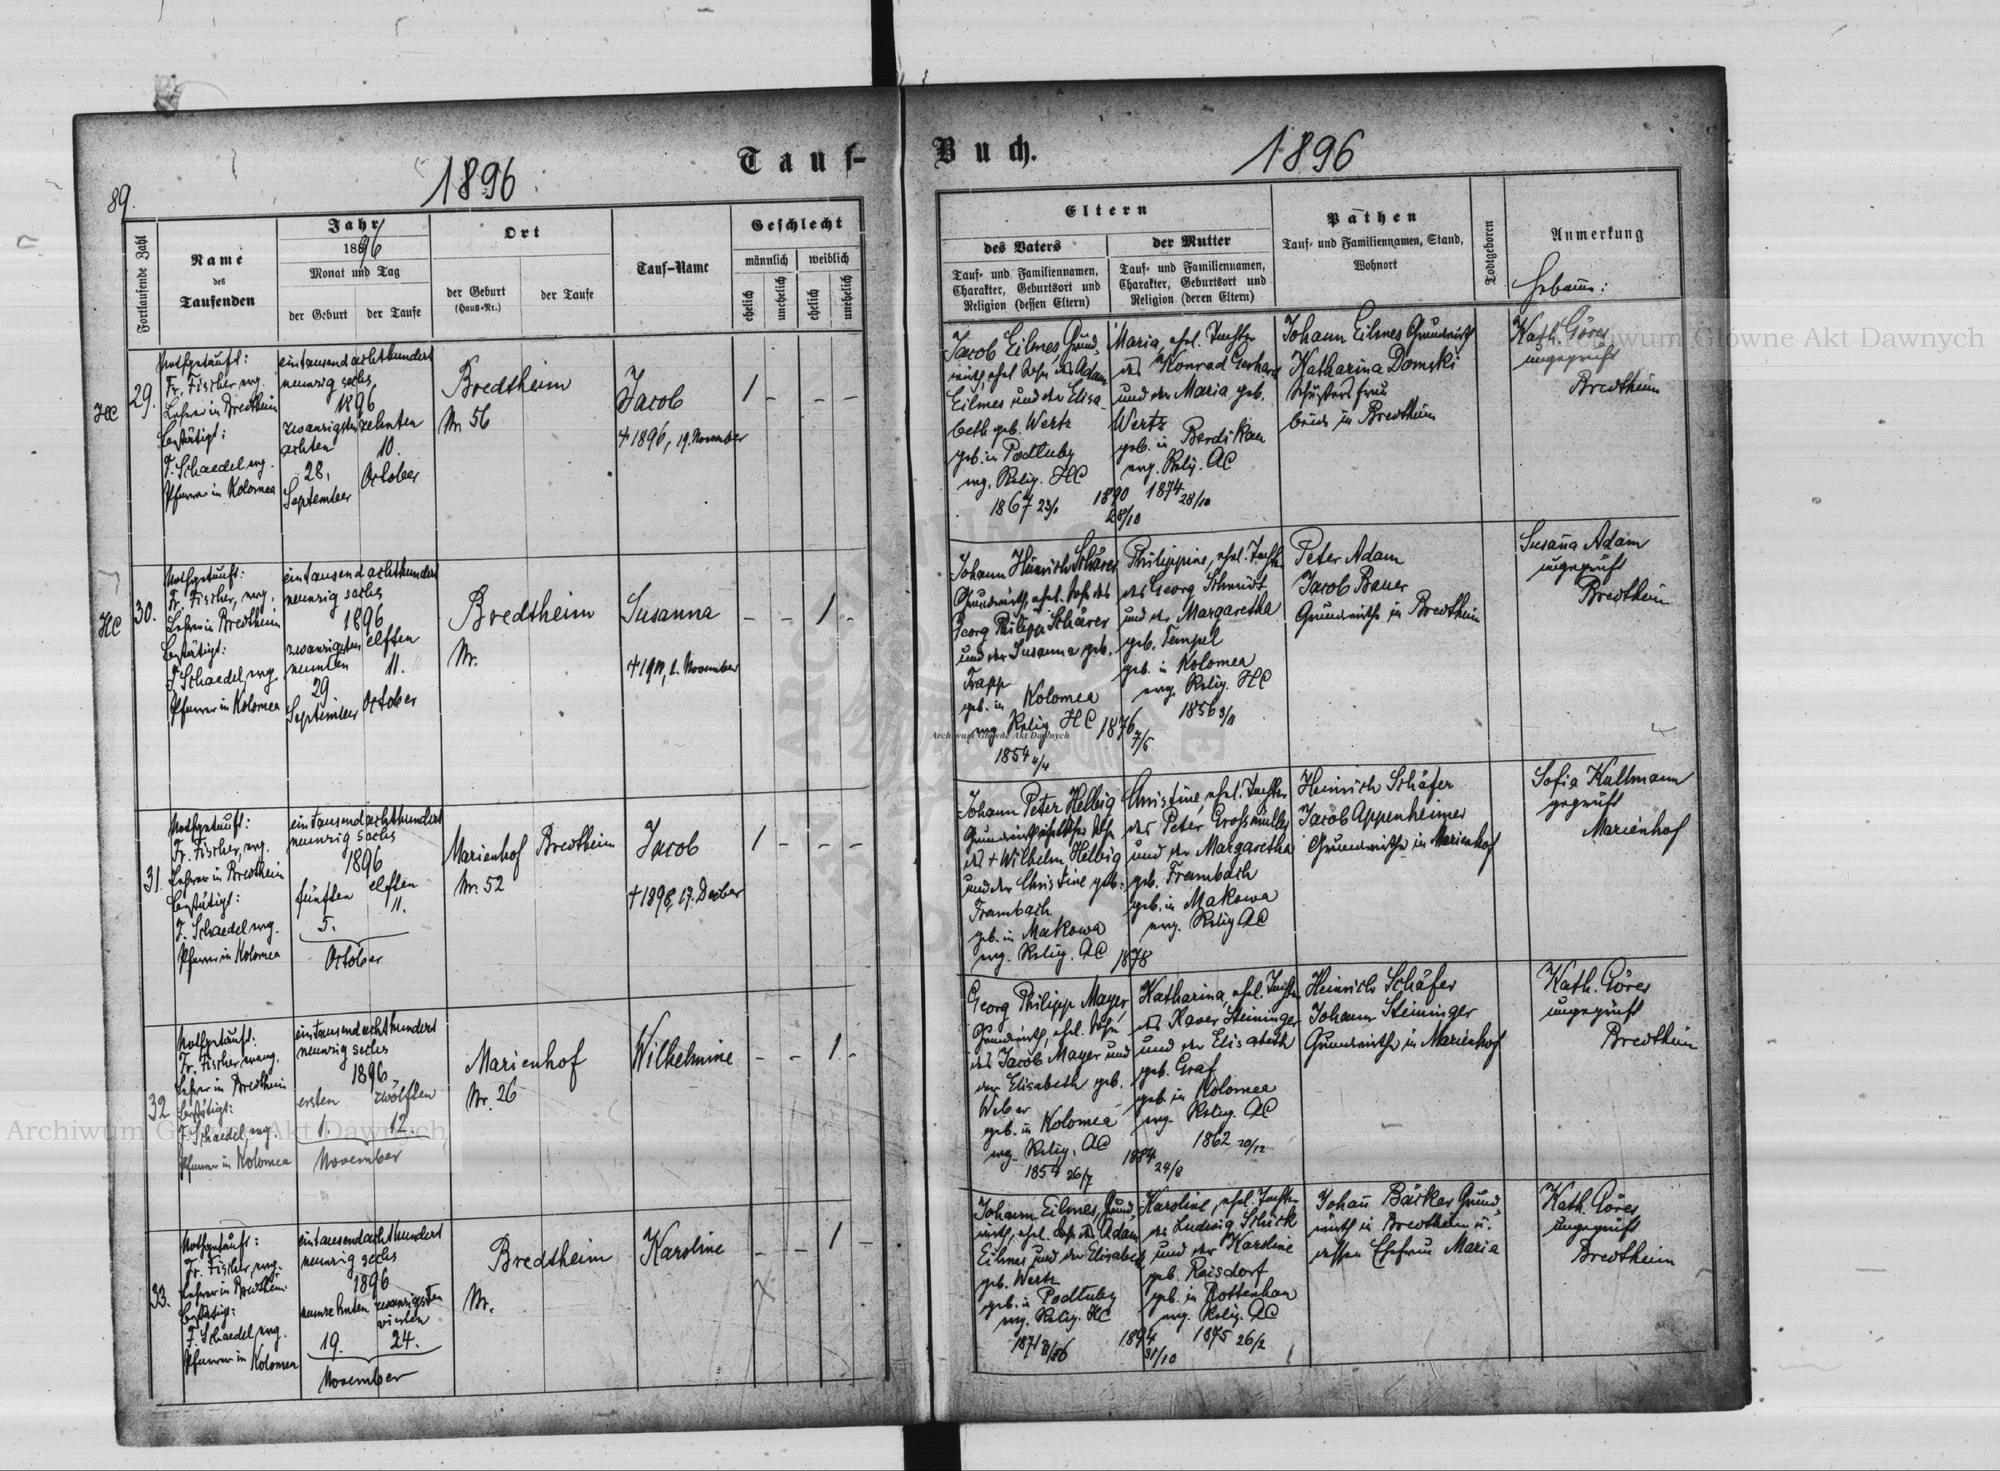 Tauf-
Buch.
1896
1896
89.
Fortlaufende Zahl
Name
des
Taufenden
Jahr
1896
Monat und Tag
der Geburt
der Taufe
Ort
der Geburt
(Haus-Nr.)
der Taufe
Tauf-Name
Geschlecht
männlich
weiblich
ehelich
unehelich
ehelich
unehelich
Eltern
des Vaters
Tauf- und Familiennamen,
Charakter, Geburtsort und
Religion (dessen Eltern)
der Mutter
Tauf- und Familiennamen,
Charakter, Geburtsort und
Religion (deren Eltern)
Pathen
Tauf- und Familiennamen, Stand,
Wohnort
Todtgeboren
Anmerkung
Hebamme:
HC
29.
Nothgetauft:
Fr. Fischer, evg.
Lehrer in Bredtheim
bestätigt:
F. Schaedel evg.
Pfarrer in Kolomea
eintausend achthundert
neunzig sechs
1896
zwanzigsten
achten
28.
September
zehnten
10.
October
Bredtheim
Nr. 56
Jacob
† 1896, 19. November
1 - - -
Jacob Eilmes, Grund-
wirth, ehel. Sohn des Adam
Eilmes und der Elisa-
beth geb. Wertz
geb. in Podluby
evg. Relig. HC
1867
1890
28/10
Maria, ehel. Tochter
des Konrad Gerhard
und der Maria geb.
Wertz
geb. in Berdikau
evg. Relig. AC
1874 28/10
Johann Eilmes Grundwirth
Katharina Domski
Schusters frau
beide in Bredtheim
Kath. Göres
ungeprüft
Bredtheim
HC
30.
Nothgetauft:
Fr. Fischer, evg.
Lehrer in Bredtheim
bestätigt:
F. Schaedel evg.
Pfarrer in Kolomea
eintausend achthundert
neunzig sechs
1896
zwanzigsten
neunten
29
September
elften
11.
October
Bredtheim
Nr.
Susanna
- - 1 -
Johann Heinrich Schärer
Grundwirth, ehel. Sohn des
Georg Philipp Schärer
und der Susanna geb.
Trapp
geb. in Kolomea
evg. Relig. HC
1854 4/4
1876
7/5
Philippine, ehel. Tochter
des Georg Schmidt
und der Margaretha
geb. Tempel
geb. in Kolomea
evg. Relig. HC
1856
Peter Adam
Jacob Bauer
Grundwirthe in Bredtheim
Susanna Adam
ungeprüft
Bredtheim
31.
Nothgetauft:
Fr. Fischer, evg.
Lehrer in Bredtheim
bestätigt:
F. Schaedel evg.
Pfarrer in Kolomea
eintausend achthundert
neunzig sechs
1896
fünften
5.
elften
11.
October
Marienhof
Nr. 52
Bredtheim
Jacob
† 1898, 17. Decber
1 - - -
Johann Peter Helbig
Grundwirth, ehelicher Sohn
des † Wilhelm Helbig
und der Christine geb.
Frambach
geb. in Makowa
evg. Relig. AC
1878
Christine, ehel. Tochter
des Peter Großmüller
und der Margaretha
geb. Frambach
geb. in Makowa
evg. Relig. AC
Heinrich Schäfer
Jacob Appenheimer
Grundwirthe in Marienhof
Sofia Kullmann
geprüft
Marienhof
32
Nothgetauft:
Fr. Fischer, evang.
Lehrer in Bredtheim
bestätigt:
F. Schaedel, evg.
Pfarrer in Kolomea
eintausend achthundert
neunzig sechs
1896
ersten
1.
zwölften
12.
November
Marienhof
Nr. 26
Wilhelmine
- - 1 -
Georg Philipp Mayer
Grundwirth, ehel. Sohn
des Jacob Mayer und
der Elisabeth geb.
Weber
geb. in Kolomea
evg. Relig. AC
1854 26/7
1884
24/8
Katharina, ehel. Tochter
des Xaver Steininger
und der Elisabeth
geb. Graf
geb. in Kolomea
evg. Relig. AC
1862 20/12
Heinrich Schäfer
Johann Steininger
Grundwirthe in Marienhof
Kath. Göres
ungeprüft
Bredtheim
33.
Nothgetauft:
Fr. Fischer, evg.
Lehrer in Bredtheim
bestätigt:
F. Schaedel, evg.
Pfarrer in Kolomea
eintausend achthundert
neunzig sechs
1896
neunzehnten
19.
zwanzigsten
vierten
24.
November
Bredtheim
Nr.
Karoline
- - 1 -
Johann Eilmes, Grund-
wirth, ehel. Sohn des Adam
Eilmes und der Elisabeth
geb. Wertz
geb. in Podluby
evg. Relig. HC
1871
1894
31/10
Karoline, ehel. Tochter
des Ludwig Schick
und der Karoline
geb. Reisdorf
geb. in Rottenhan
evg. Relig. AC
1875 26/2
Johann Bäcker Grund-
wirth in Bredtheim u.
dessen Ehefrau Maria
Kath. Göres
ungeprüft
Bredtheim
Archiwum Główne Akt Dawnych
Archiwum Główne Akt Dawnych
Archiwum Główne Akt Dawnych